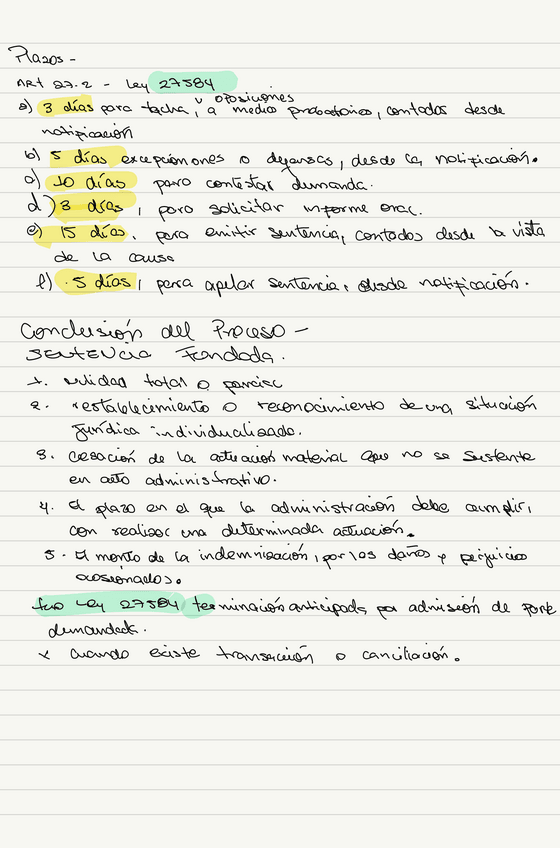 Plazos -
Art 27.2 - Ley 27584
a) 3 días para tacha, u oposiciones a medios probatorios, contados desde
notificación
b) 5 días excepcionones o defensas, desde la notificación.
c) 10 días para contestar demanda.
d) 3 días, para solicitar informe oral.
e) 15 días, para emitir sentencia, contados desde la vista
de la causa
f) 5 días, para apelar sentencia, desde notificación.
Conclusión del Proceso -
SENTENCIA Fundada.
1. nulidad total o parcial
2. restablecimiento o reconocimiento de una situación
jurídica individualizada.
3. cesación de la actuación material que no se sustente
en acto administrativo.
4. El plazo en el que la administración debe cumplir,
con realizar una determinada actuación.
5. El monto de la indemnización, por los daños y perjuicios
ocasionados.
Ley 27584 terminación anticipada por admisión de parte
demandada.
x cuando existe transacción o canciliación.